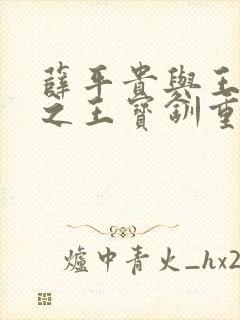 薛平貴與王
之王寶釧重
爐中青火_hx2